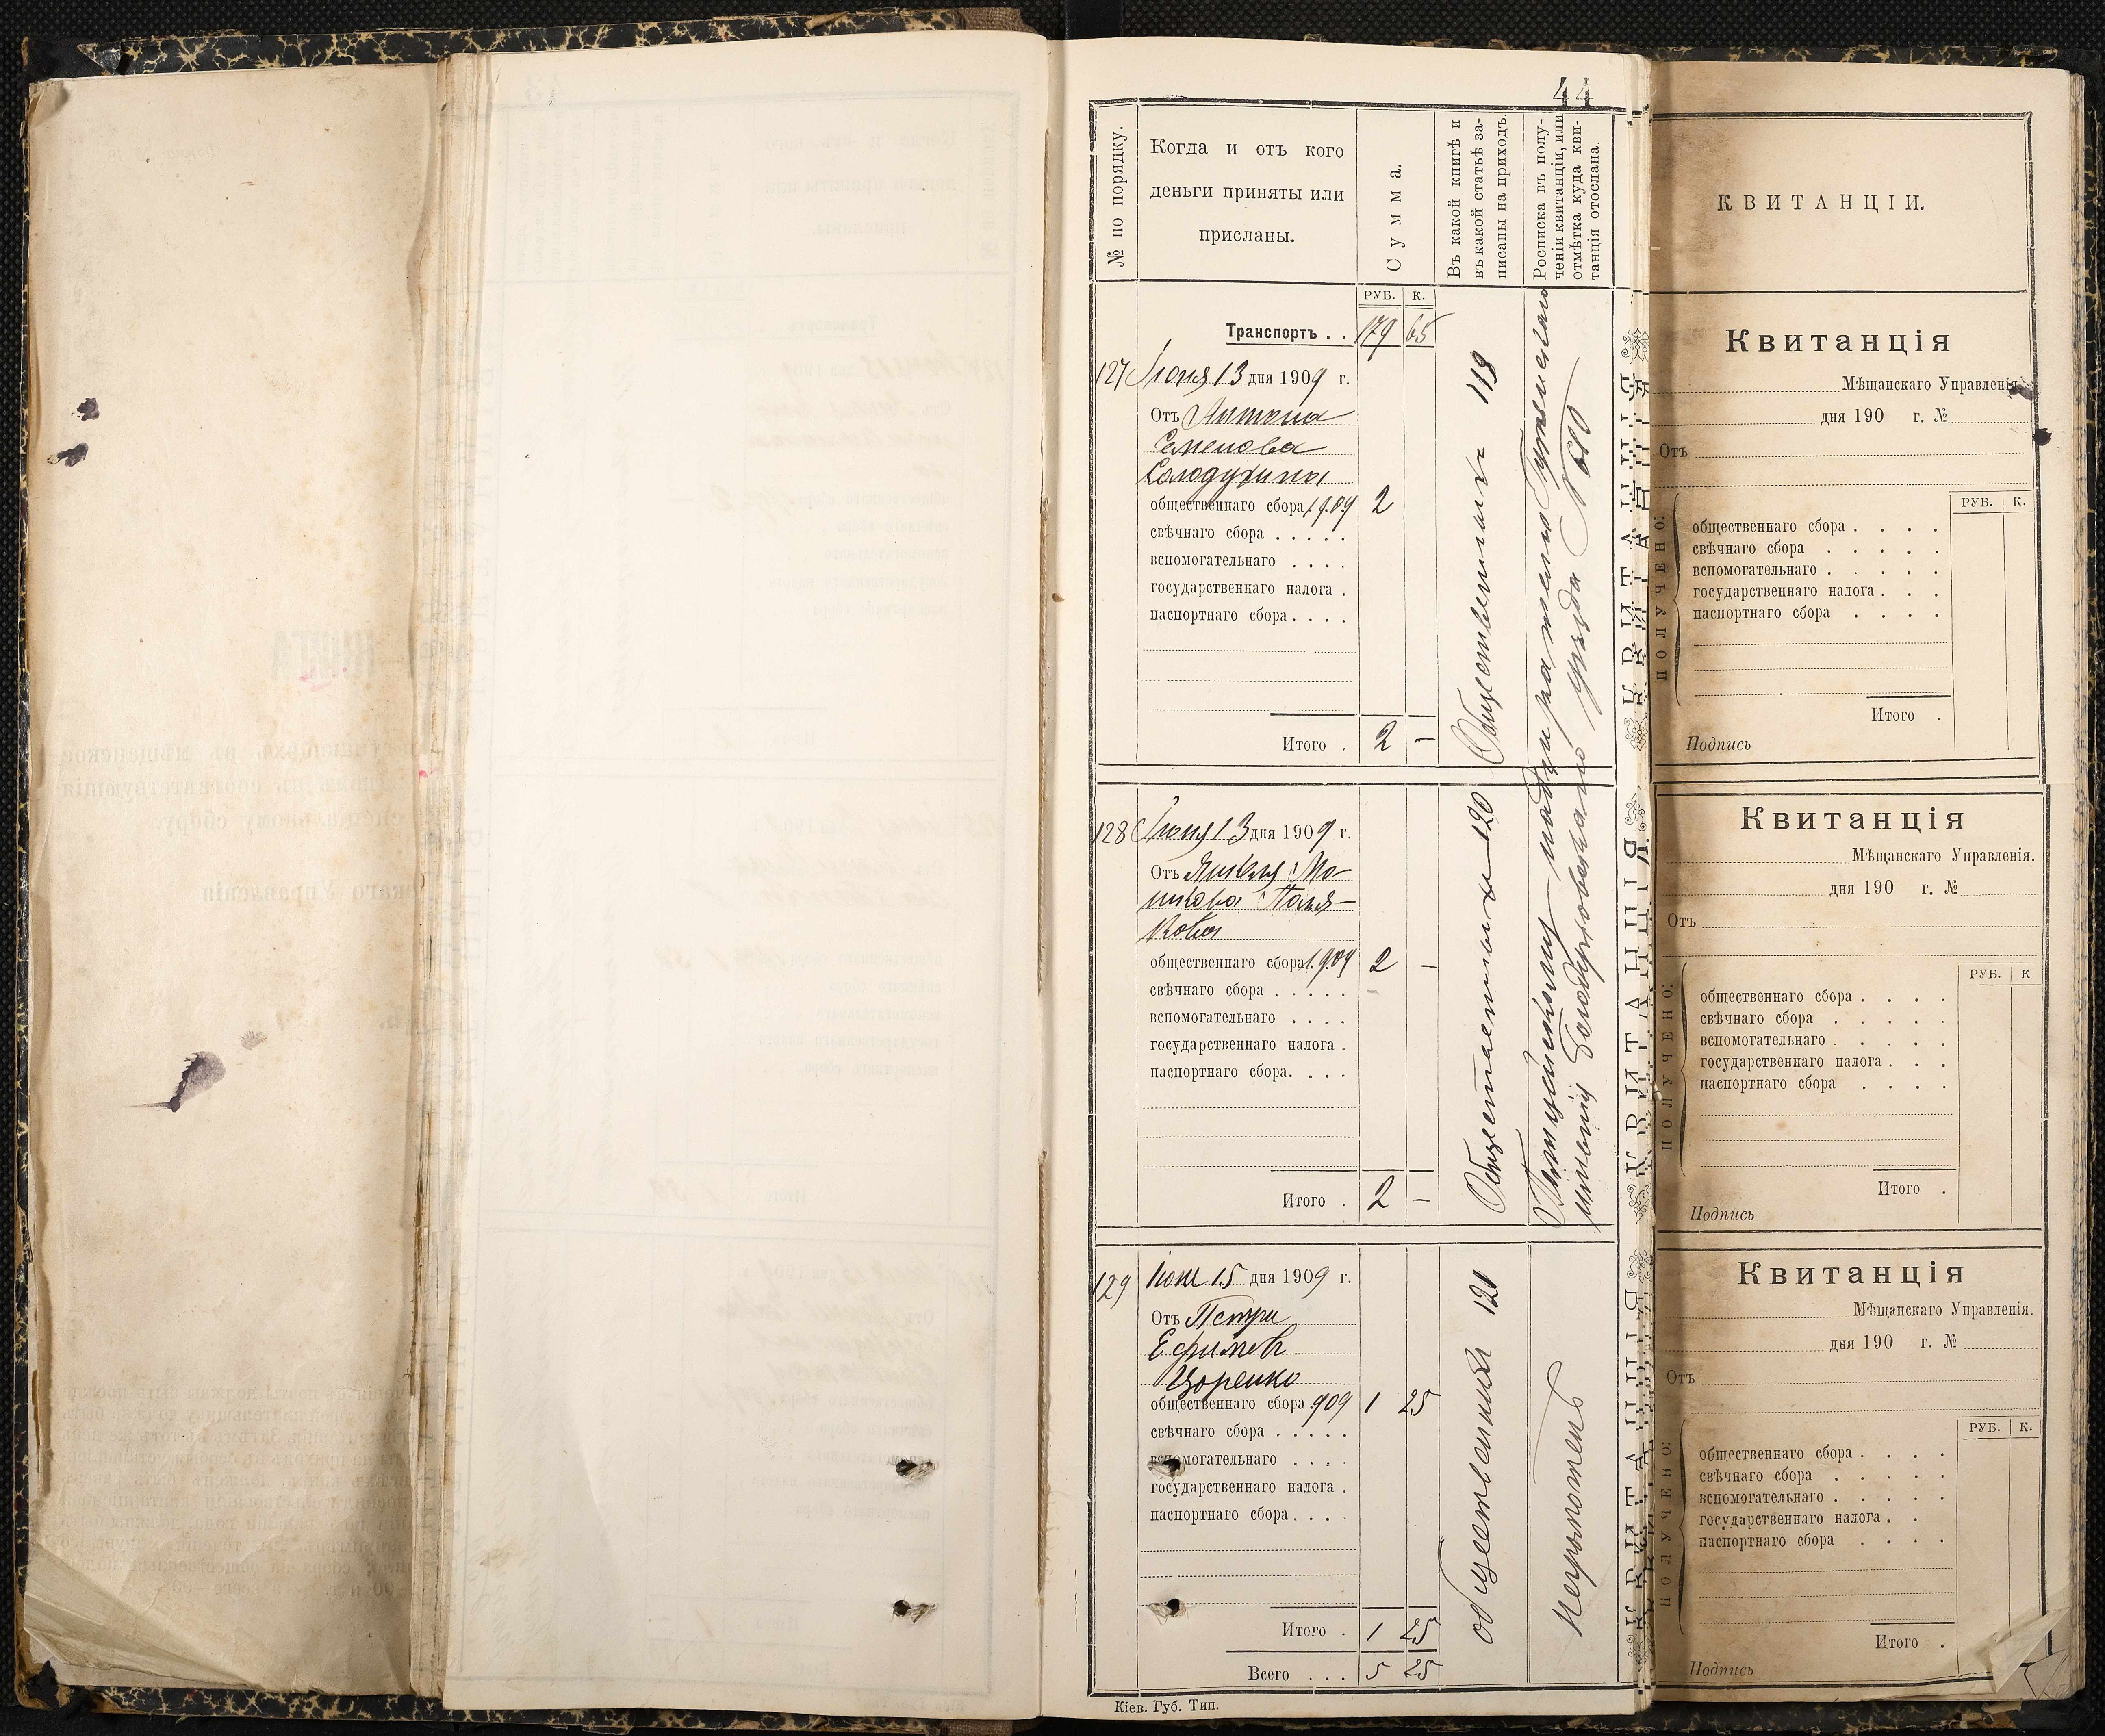 44
№ по порядку.
Когда и отъ кого
деньги приняты или
присланы.
Сумма.
Въ какой книгѣ и
въ какой статьѣ за-
писаны на приходъ.
Росписка въ полу-
ченіи квитанціи, или
отмѣтка куда кви-
танція отослана.
РУБ. К.
Транспортъ . . 179 65
127 Іюня 13 дня 1909 г.
Отъ Антона
Семенова
Солодухина
общественнаго сбора 1909 2
свѣчнаго сбора . . . . .
вспомогательнаго . . . .
государственнаго налога .
паспортнаго сбора. . . .
Итого . 2 –
119
128 Іюня 13 дня 1909 г.
Отъ Янкеля Мо-
шкова Поля-
кова
общественнаго сбора 1909 2 –
свѣчнаго сбора . . . . .
вспомогательнаго . . . .
государственнаго налога .
паспортнаго сбора. . . .
Итого . 2 –
120
№ 650
129 Іюня 15 дня 1909 г.
Отъ Петра
Ефимов
общественнаго сбора 909 1 25
свѣчнаго сбора . . . . .
вспомогательнаго . . . .
государственнаго налога .
паспортнаго сбора . . . .
Итого . 1 25
Всего . . . 5 25
121
Неграмотенъ
Кіев. Губ. Тип.
КВИТАНЦІИ.
Квитанція
Мѣщанскаго Управленія
дня 190 г. №
Отъ
ПОЛУЧЕНО:
РУБ. К.
общественнаго сбора . . . .
свѣчнаго сбора . . . . .
вспомогательнаго . . . . .
государственнаго налога . . .
паспортнаго сбора . . . .
Итого .
Подпись
Квитанція
Мѣщанскаго Управленія.
дня 190 г. №
Отъ
ПОЛУЧЕНО:
РУБ. К
общественнаго сбора . . . .
свѣчнаго сбора . . . . .
вспомогательнаго . . . . .
государственнаго налога . . .
паспортнаго сбора . . . .
Итого .
Подпись
Квитанція
Мѣщанскаго Управленія.
дня 190 г. №
Отъ
ПОЛУЧЕНО:
РУБ. К.
общественнаго сбора . . . .
свѣчнаго сбора . . . . .
вспомогательнаго . . . . .
государственнаго налога . .
паспортнаго сбора . . . .
Итого .
Подпись